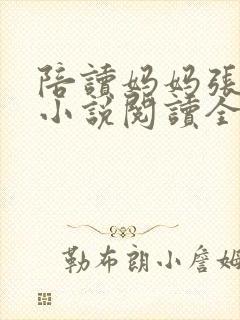 陪讀妈妈張
小說閱讀全
勒布朗小詹姆